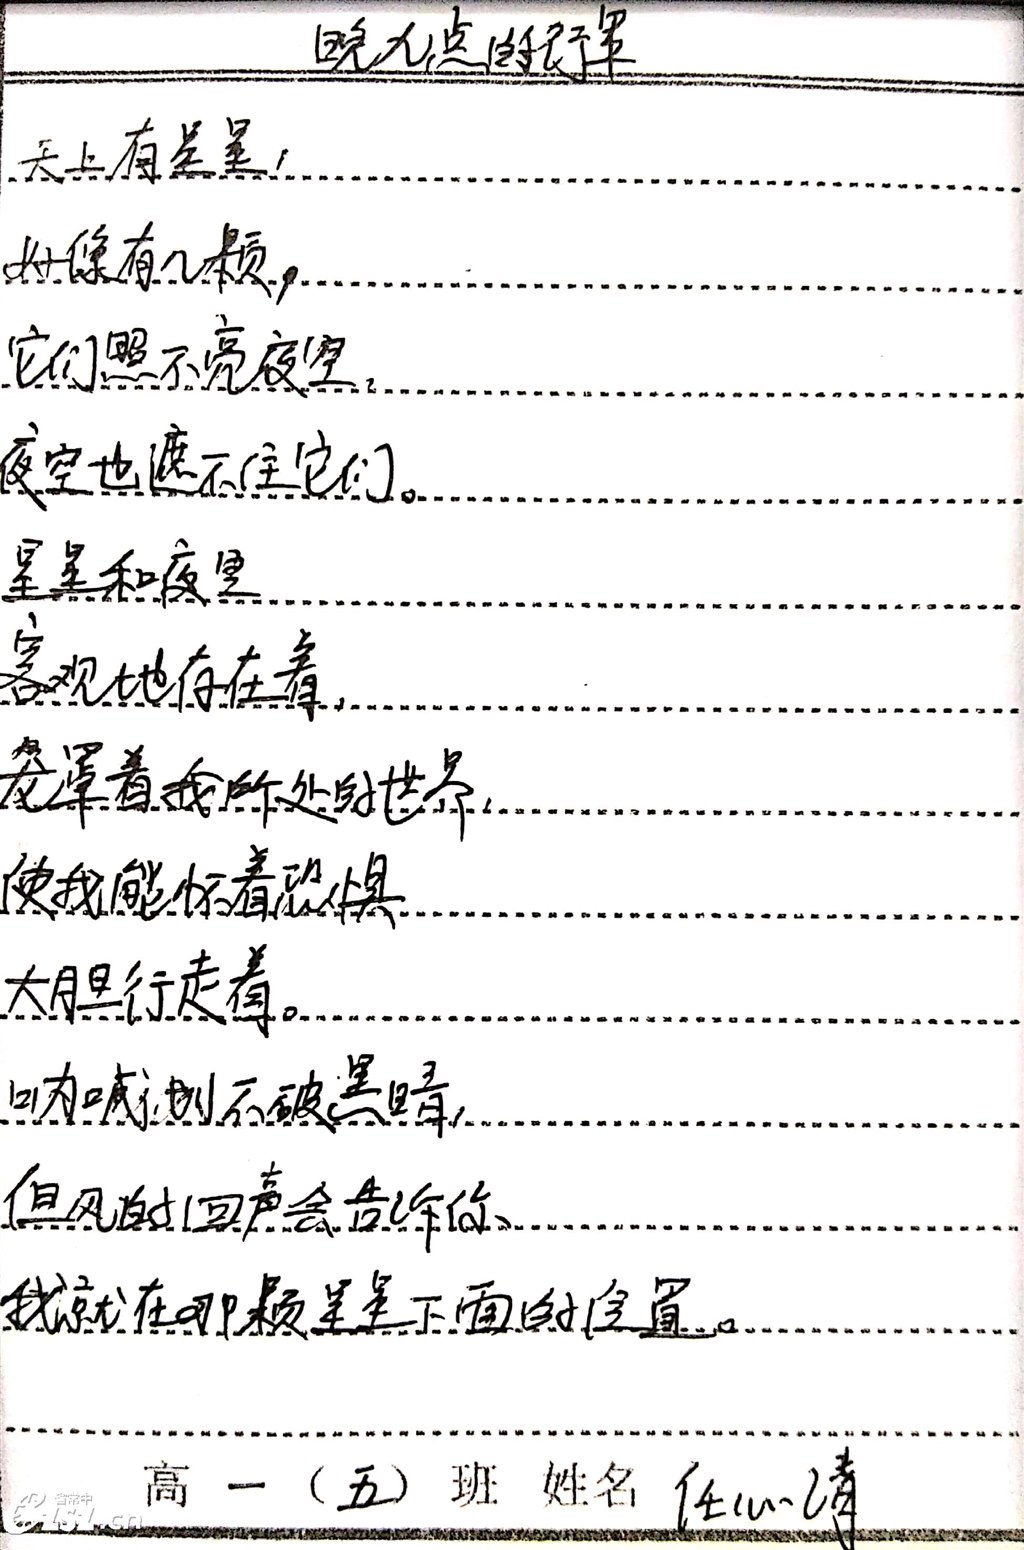 晚九点的
天上有星星，
好像有几颗，
它们照不亮夜空，
夜空也遮不住它们。
星星和夜里
客观地存在着，
笼罩着我所处的世界，
使我能怀着恐惧
大胆行走着。
呐喊划不破黑暗，
但风的回声会告诉你、
我就在那颗星星下面的位置。
高一（五）班 姓名 任心清